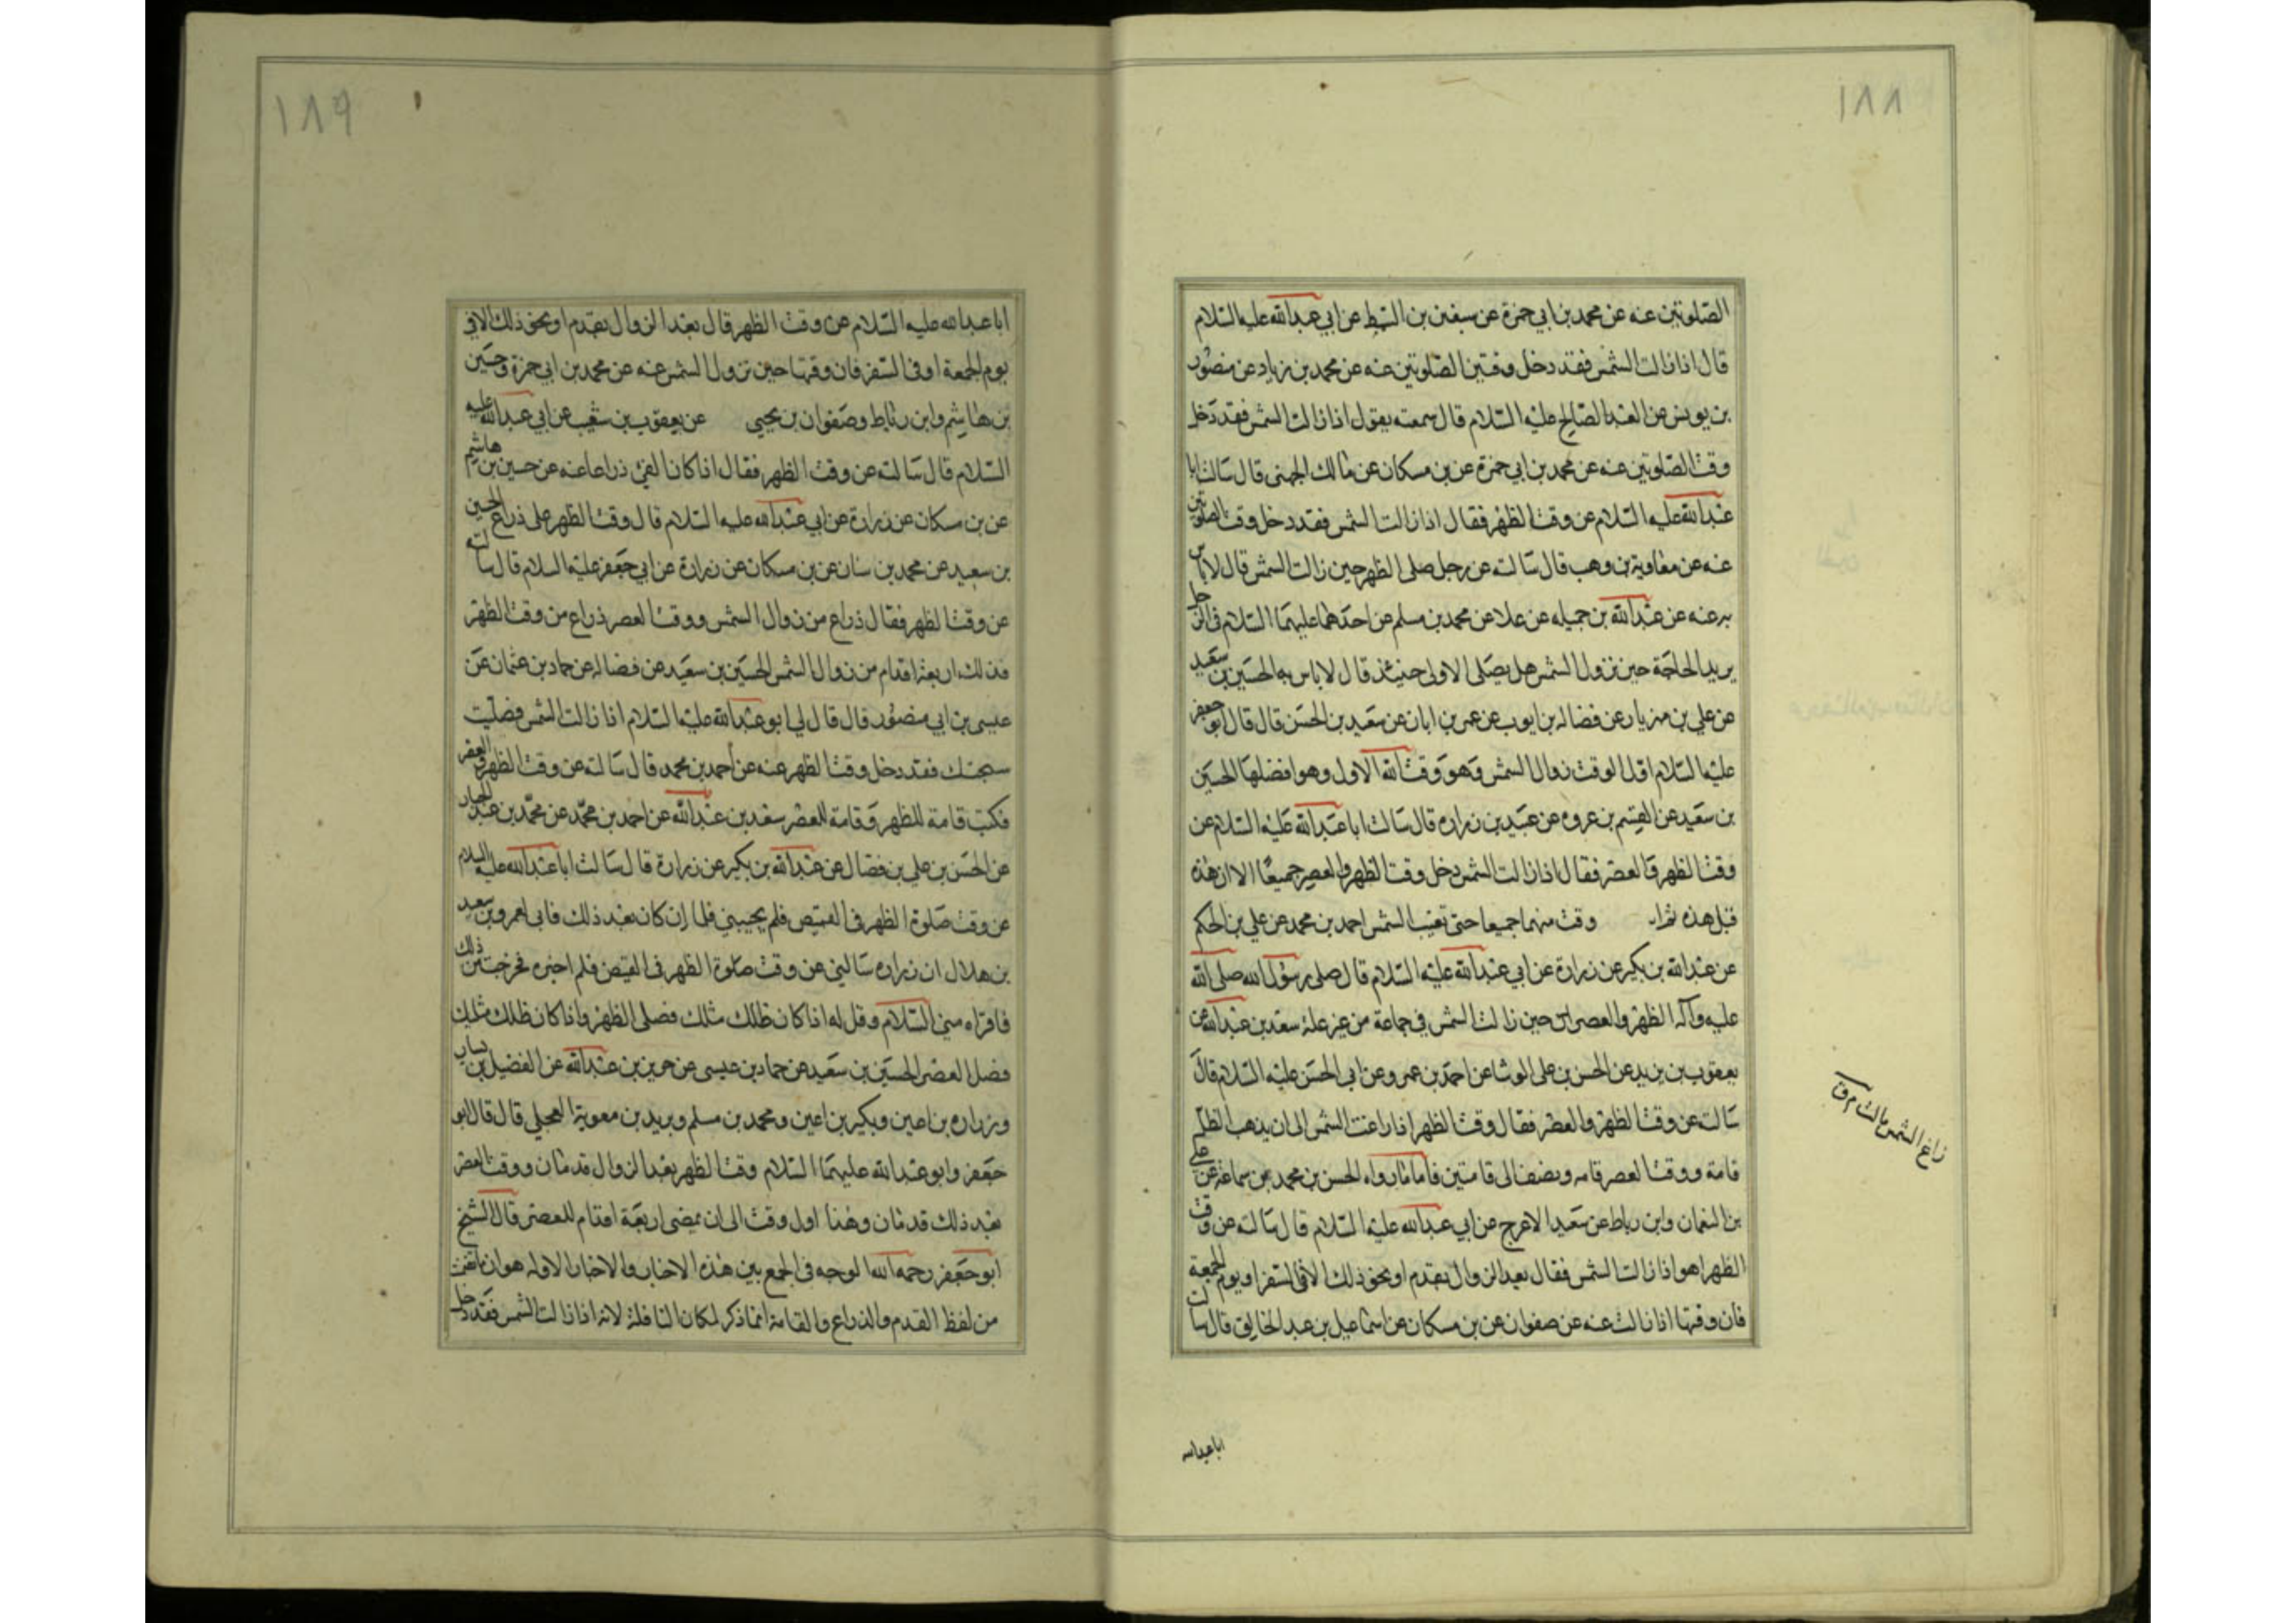 ١٨٨
الصلوتين عنه عن محمد بن ابي حمزة عن سفين بن السمط عن ابي عبدالله عليه السلام
قال اذا زالت الشمس فقد دخل وقتين الصلوتين عنه عن محمد بن زياد عن منصور
بن يونس عن العبد الصالح عليه السلام قال سمعته يقول اذا زالت الشمس فقد دخل
وقت الصلوتين عنه عن محمد بن ابي حمزة عن بن مسكان عن مالك الجهنى قال سالت ابا
عبدالله عليه السلام عن وقت الظهر فقال اذا زالت الشمس فقد دخل وقت الصلوتين
عنه عن معاوية بن وهب قال سالته عن رجل صلى الظهر حين زالت الشمس قال لا باس
به عنه عن عبدالله بن جميله عن علا عن محمد بن مسلم عن احدهما عليهما السلام فى الرجل
يريد الحاجة حين تزول الشمس هل يصلى الاولى حينئذ قال لا باس به الحسين بن سعيد
عن علي بن مهزيار عن فضاله بن ايوب عن عمر بن ابان عن سعيد بن الحسن قال قال ابو جعفر
عليه السلام اول الوقت زوال الشمس وهو وقت الله الاول وهو افضلها الحسين
بن سعيد عن القسم بن عروه عن عبيد بن زراره قال سالت ابا عبدالله عليه السلام عن
وقت الظهر والعصر فقال اذا زالت الشمس دخل وقت الظهر والعصر جميعًا الا ان هذه
قبل هذه ثم ا وقت منهما جميعا حتى تغيب الشمس احمد بن محمد عن علي بن الحكم
عن عبدالله بن بكير عن زرارة عن ابي عبدالله عليه السلام قال صلى رسول الله صلى الله
عليه وآله الظهر والعصر حين زالت الشمس في جماعة من غير علة سعد بن عبدالله عن
يعقوب بن يزيد عن الحسن بن علي الوشا عن احمد بن عمر وعن ابي الحسن عليه السلام قال
سالته عن وقت الظهر والعصر فقال وقت الظهر اذا زاغت الشمس الى ان يذهب الظل
قامة ووقت العصر قامه ونصف الى قامتين فاما ما رواه الحسن بن محمد بن سماعة عن علي
بن النعمان وابن رباط عن سعيد الاعرج عن ابي عبدالله عليه السلام قال سالته عن وقت
الظهر اهو اذا زالت الشمس فقال بعد الزوال بقدم او نحو ذلك الا فى السفر او يوم الجمعة
فان وقتها اذا زالت عنه عن صفوان عن بن مسكان عن اسماعيل بن عبد الخالق قال سالت
زاغ الشمس مالت م ق
اباعبدالله
١٨٩
ابا عبدالله عليه السلام عن وقت الظهر قال بعد الزوال بقدم او نحو ذلك الا في
يوم الجمعة او فى السفر فان وقتها حين تزول الشمس عنه عن محمد بن ابي حمزة وحسين
بن هاشم وابن رباط وصفوان بن يحيى عن يعقوب بن شعيب عن ابي عبدالله عليه
السلام قال سالته عن وقت الظهر فقال اذا كان الفئ ذراعا عنه عن حسين بن هاشم
عن بن مسكان عن زرارة عن ابي عبدالله عليه السلام قال وقت الظهر على ذراع الحسين
بن سعيد عن محمد بن سنان عن بن مسكان عن زرارة عن ابي جعفر عليه السلام قال سالته
عن وقت الظهر فقال ذراع من زوال الشمس ووقت العصر ذراع من وقت الظهر
فذلك اربعة اقدام من زوال الشمس الحسين بن سعيد عن فضاله عن حماد بن عثمان عن
عيسى بن ابي منصور قال قال لي ابو عبدالله عليه السلام اذا زالت الشمس فصليت
سبحتك فقد دخل وقت الظهر عنه عن أحمد بن محمد قال سالته عن وقت الظهر والعصر
فكتب قامة للظهر وقامة للعصر سعد بن عبدالله عن احمد بن محمّد عن محمّد بن عبد الجبار
عن الحسن بن علي بن فضال عن عبدالله بن بكير عن زرارة قال سالت ابا عبدالله عليه السلام
عن وقت صلوة الظهر فى القيض فلم يجيبني فلما ان كان بعد ذلك قال لعمرو بن سعيد
بن هلال ان زراره سالني عن وقت صلوة الظهر فى القيض فلم اخبره فحرجت من ذلك
فاقراه مني السلام وقل له اذا كان ظلك مثلك فصلى الظهر واذا كان ظلك مثليك
فصل العصر الحسين بن سعيد عن حماد بن عيسى عن حريز بن عبدالله عن الفضيل بن يسار
وزراره بن اعين وبكير بن اعين ومحمد بن مسلم وبريد بن معوية العجلي قال قال ابو
جعفر وابو عبدالله عليهما السلام وقت الظهر بعد الزوال قدمان ووقت العصر
بعد ذلك قدمان وهذا اول وقت الى ان يمضى اربعة اقدام للعصر قال الشيخ
ابو جعفر رحمه الله الوجه فى الجمع بين هذه الاخبار والاخبار الاوله هو ان
من لفظ القدم والذراع والقامة انما ذكر لمكان النافلة لانه اذا زالت الشمس فقد دخل